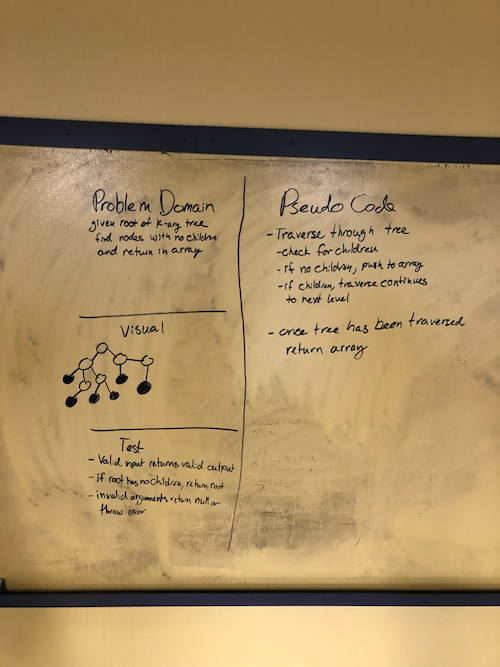 Problem Domain
given root of K-ary tree
find nodes with no children
and return in array
Visual
Test
- Valid input returns valid output
- if root has no children, return root
- invalid arguments return null or
throw error
Pseudo Code
- Traverse through tree
- check for children
- if no children, push to array
- if children, traverse continues
to next level
- once tree has been traversed
return array